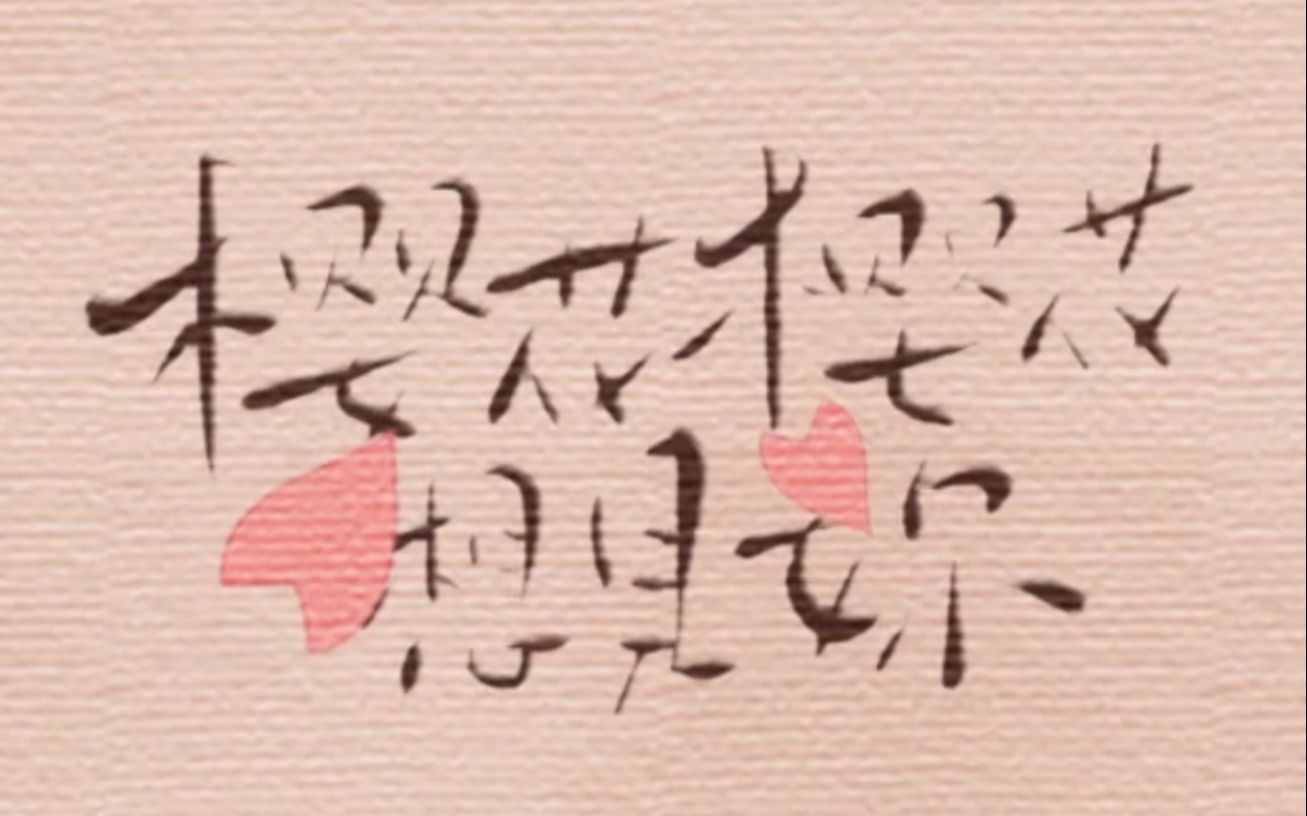 樱花樱花
想见你